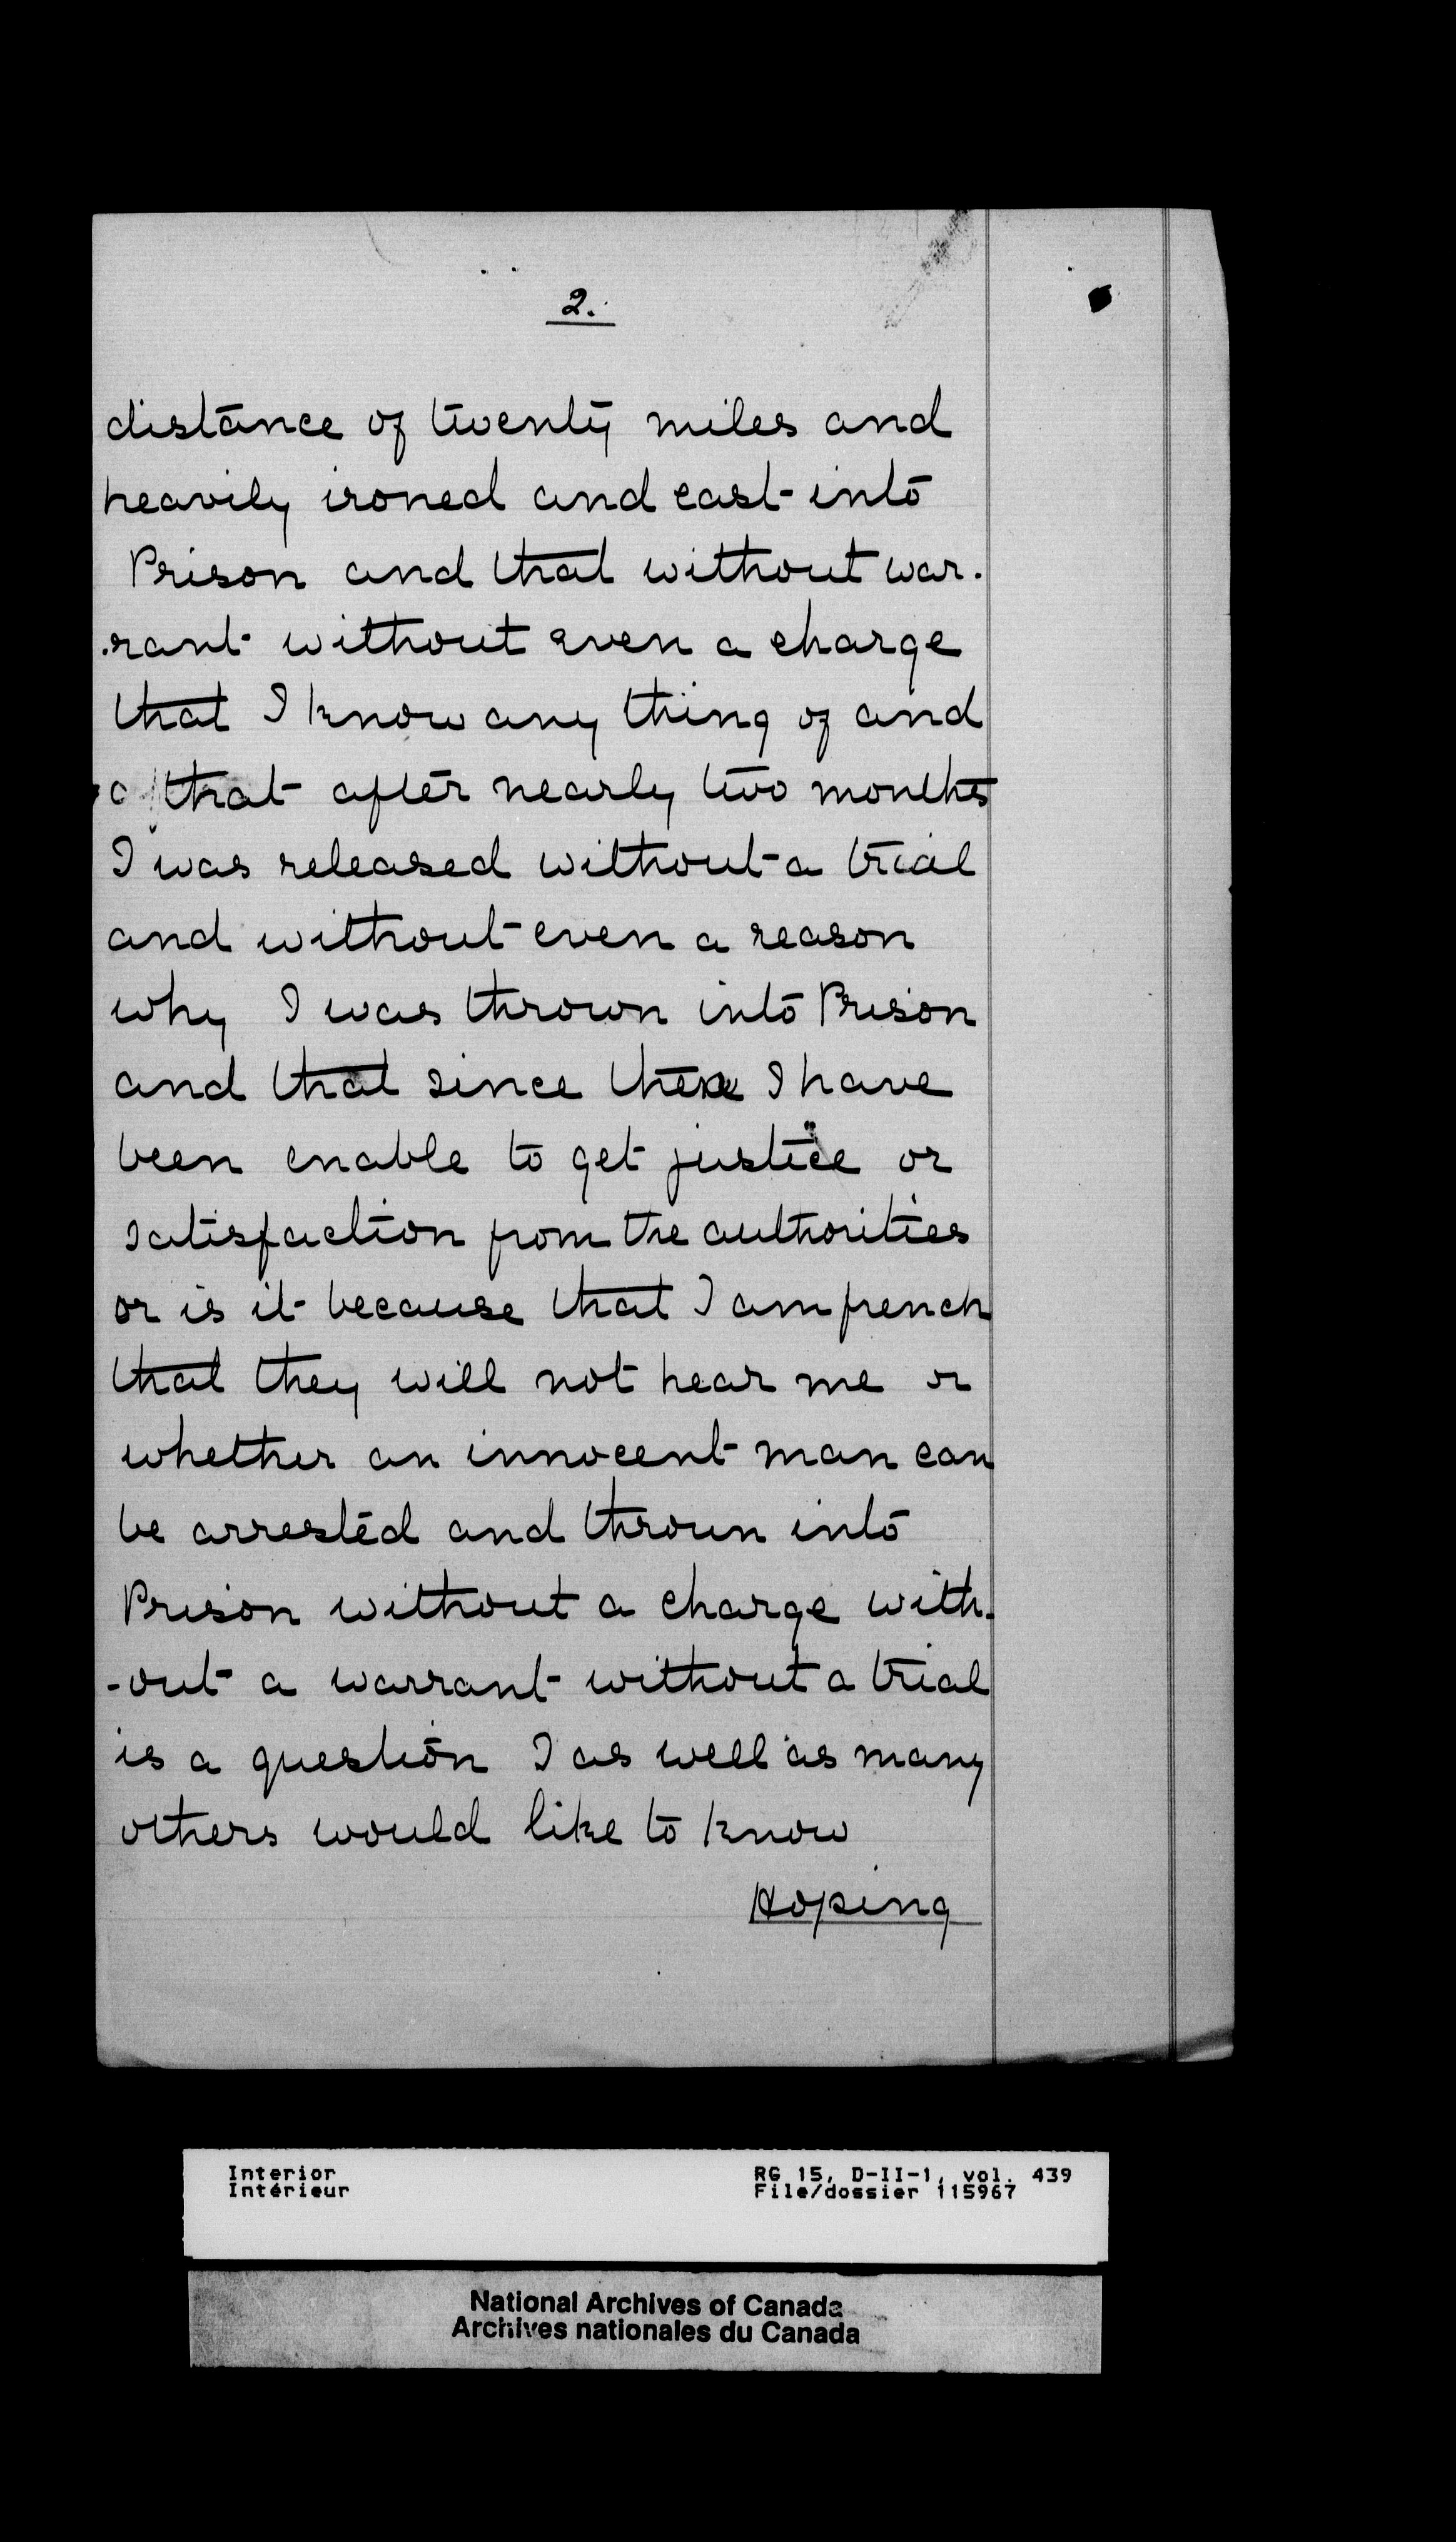 2.
distance of twenty miles and
heavily ironed and cast into
Prison and that without war-
-rant without even a charge
that I know any thing of and
that after nearly two months
I was released without a trial
and without even a reason
why I was thrown into Prison
and that since then I have
been enable to get justice or
satisfaction from the authorities
or is it because that I am french
that they will not hear me or
whether an innocent man can
be arrested and thrown into
Prison without a charge with-
-out a warrant without a trial
is a question I as well as many
others would like to know
Hoping
Interior
Intérieur
RG 15, D-II-1, vol. 439
File/dossier 115967
National Archives of Canada
Archives nationales du Canada